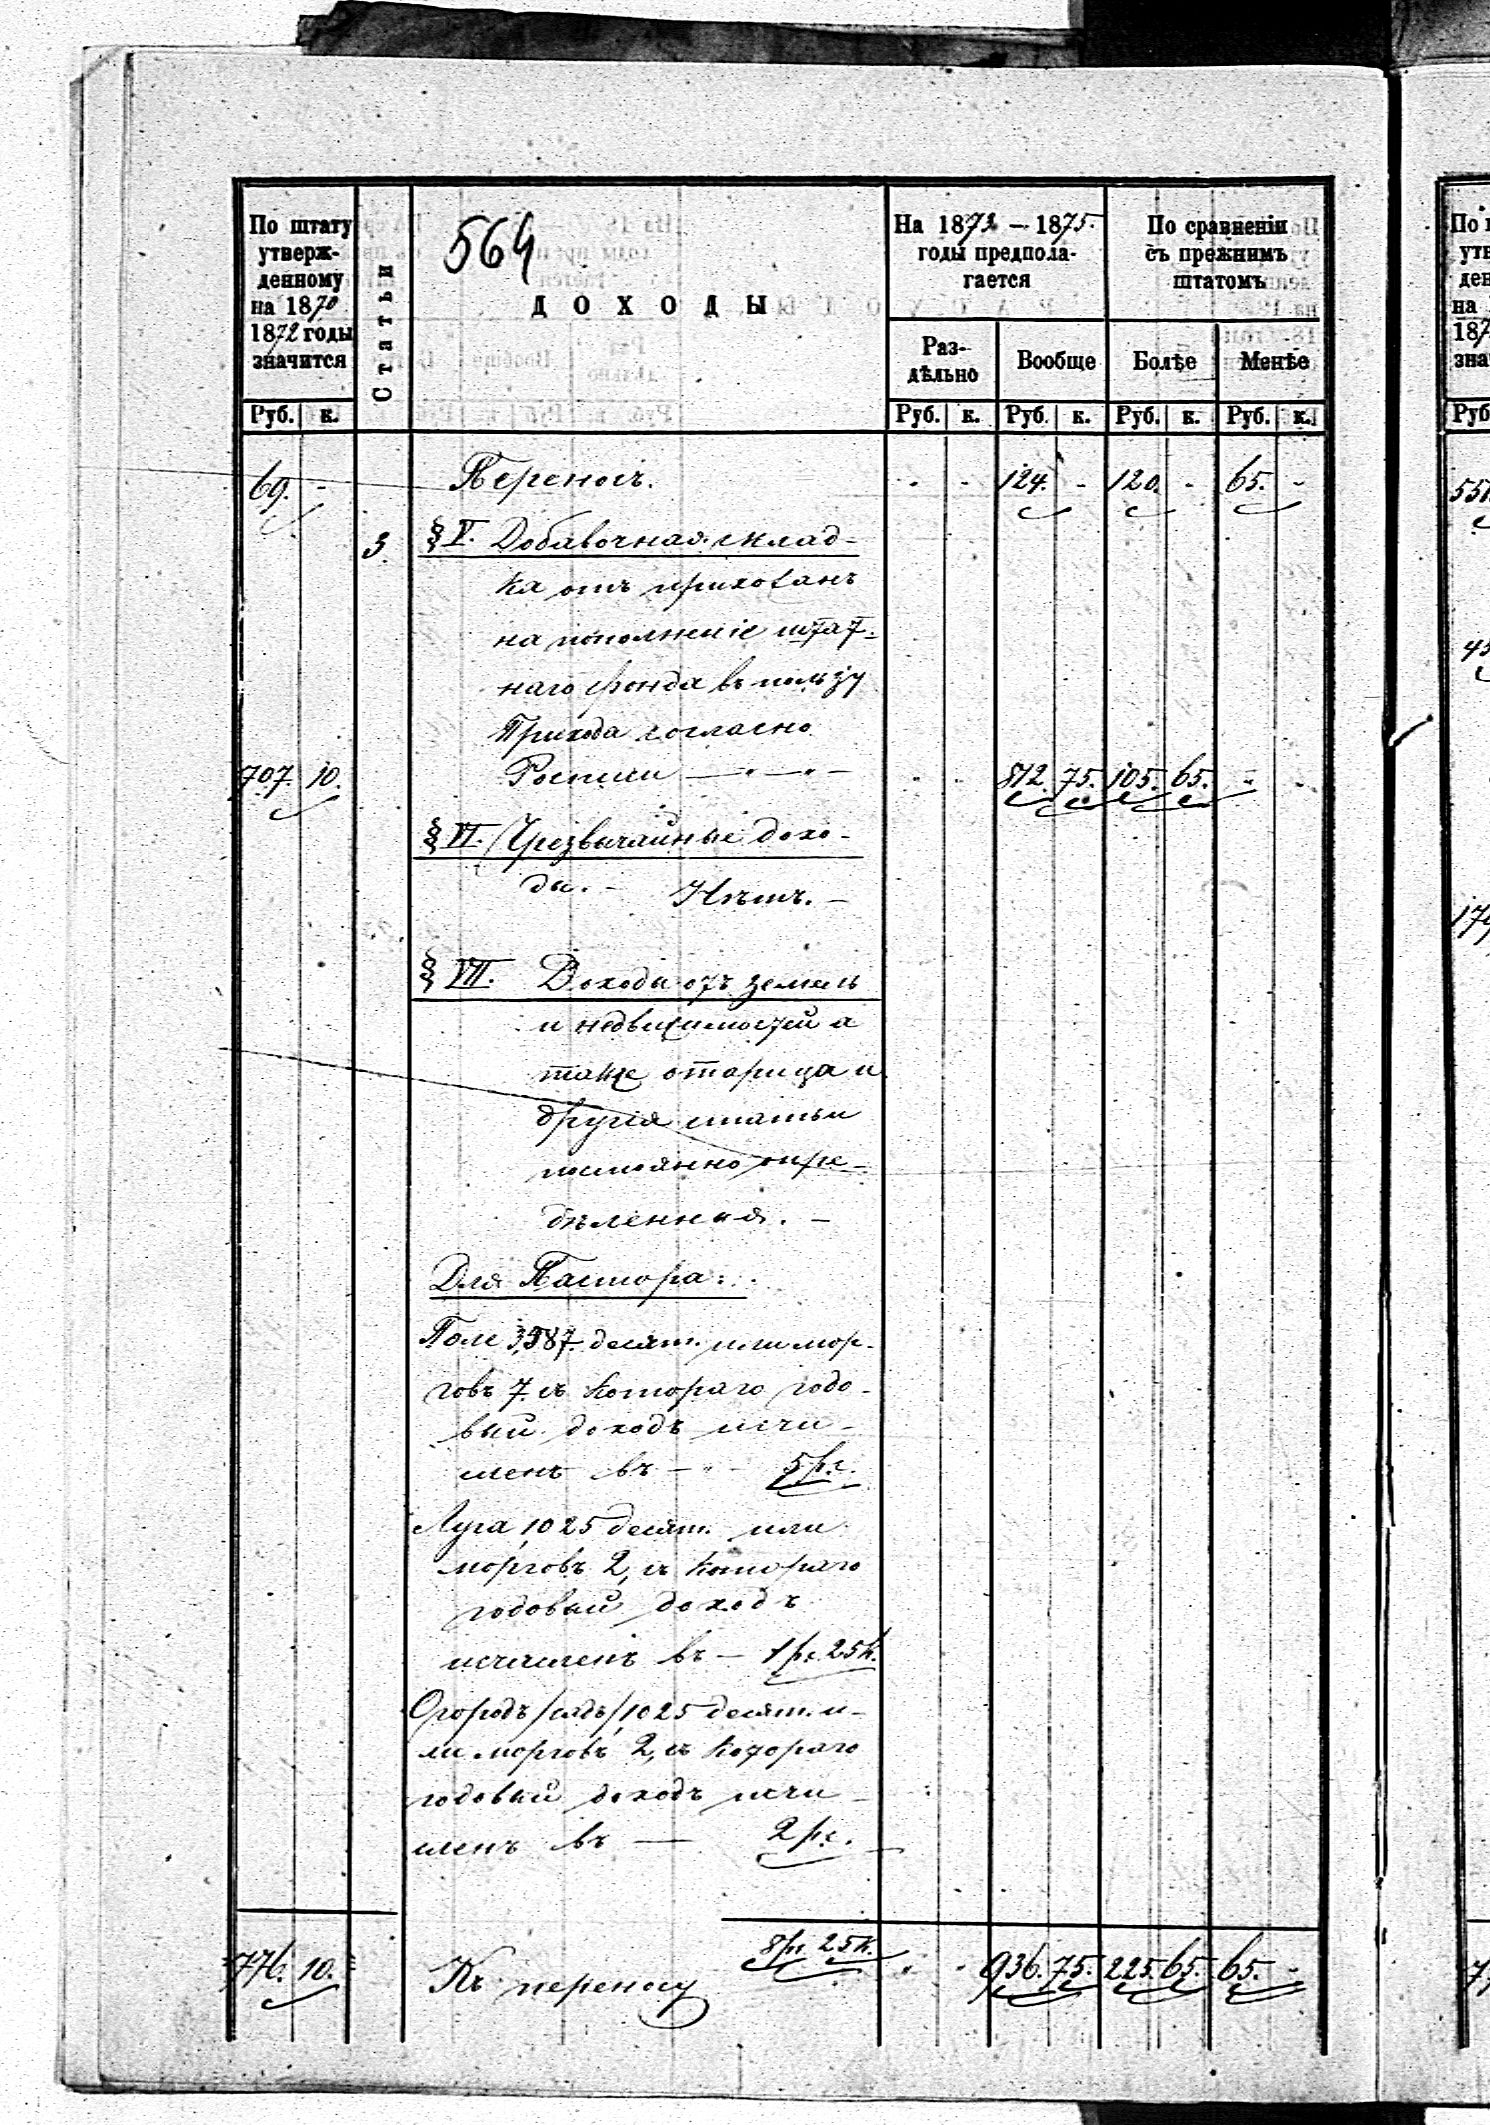 564
По штату
утверж-
денному
на 1870
1872 годы
значится
Статьи
ДОХОДЫ
На 1872 — 1875
годы предпола-
гается
По сравненіи
съ прежнимъ
штатомъ
Раз-
дѣльно
Вообще
Болѣе
Менѣе
Руб. к.
Руб. к. Руб. к. Руб. к. Руб. к.
69. - Переносъ. - - 124. - 120. - 65. -
3. § V. Добавочная склад-
ка отъ прихожанъ
на пополненіе штат-
наго фонда въ пользу
Прихода согласно
707. 10. Росписи — " — " — 812. 75. 105. 65. - -
§ VI. Чрезвычайные дохо-
ды. - Нѣтъ. -
§ VII. Доходы отъ земель
и недвижимостей а
также
другія статьи
постоянно опре-
дѣленныя. -
Для Пастора:
Поле 3,587 десят. или мор-
говъ 7. съ котораго годо-
вый доходъ исчи-
сленъ въ — " - 5 р.с.
Луга 1025 десят. или
морговъ 2, съ котораго
годовый доходъ
исчисленъ въ — 1 р.с. 25 к.
Огородъ /садъ/ 1025 десят. и-
ли морговъ 2, съ котораго
годовый доходъ исчи-
сленъ въ — 2 р.с.
776. 10. Къ переносу 8 р. 25 к. - - 936. 75. 225. 65. 65. -